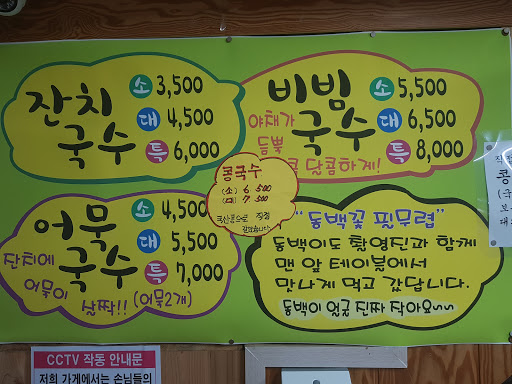 잔치
국수
소 3,500
대 4,500
특 6,000
비빔
국수
야채가
듬뿍
매콤 달콤하게!
소 5,500
대 6,500
특 8,000
콩국수
(소) 6 500
(대) 7 500
국산콩으로 직접
어묵
국수
잔치에
어묵이
살짝!! (어묵2개)
소 4,500
대 5,500
특 7,000
"동백꽃 필무렵"
동백이도 촬영진과 함께
맨 앞 테이블에서
맛나게 먹고 갔답니다.
동백이 얼굴 진짜 작아요~~
CCTV 작동 안내문
저희 가게에서는 손님들의